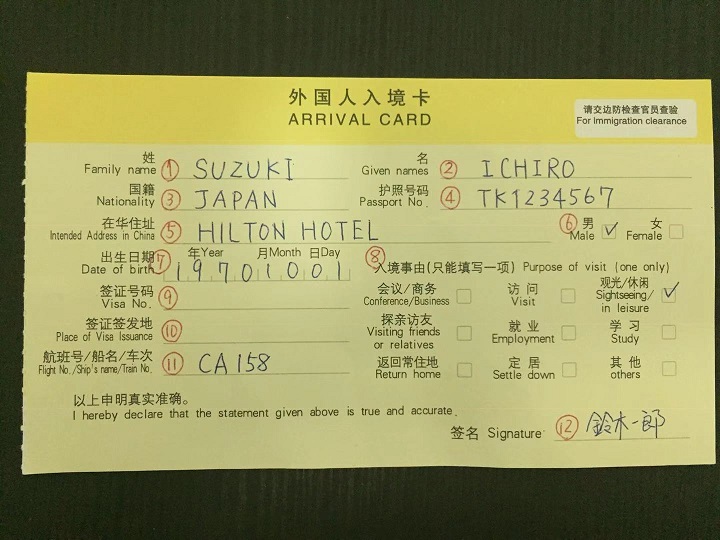 外国人入境卡
ARRIVAL CARD
请交边防检查官员查验
For Immigration clearance
姓
Family name ① SUZUKI
名
Given names ② ICHIRO
国籍
Nationality ③ JAPAN
护照号码
Passport No. ④ TK1234567
在华住址
Intended Address in China ⑤ HILTON HOTEL
⑥ 男 Male ✓ 女 Female
出生日期 Date of birth ⑦ 年Year 月Month 日Day
19701001
⑧ 入境事由(只能填写一项) Purpose of visit (one only)
会议/商务
Conference/Business
访问
Visit
观光/休闲
Sightseeing/
in leisure ✓
签证号码
Visa No. ⑨
签证签发地
Place of Visa Issuance ⑩
探亲访友
Visiting friends
or relatives
就业
Employment
学习
Study
航班号/船名/车次
Flight No./Ship's name/Train No. ⑪ CA158
返回常住地
Return home
定居
Settle down
其他
others
以上申明真实准确。
I hereby declare that the statement given above is true and accurate.
签名 Signature ⑫ 鈴木一郎